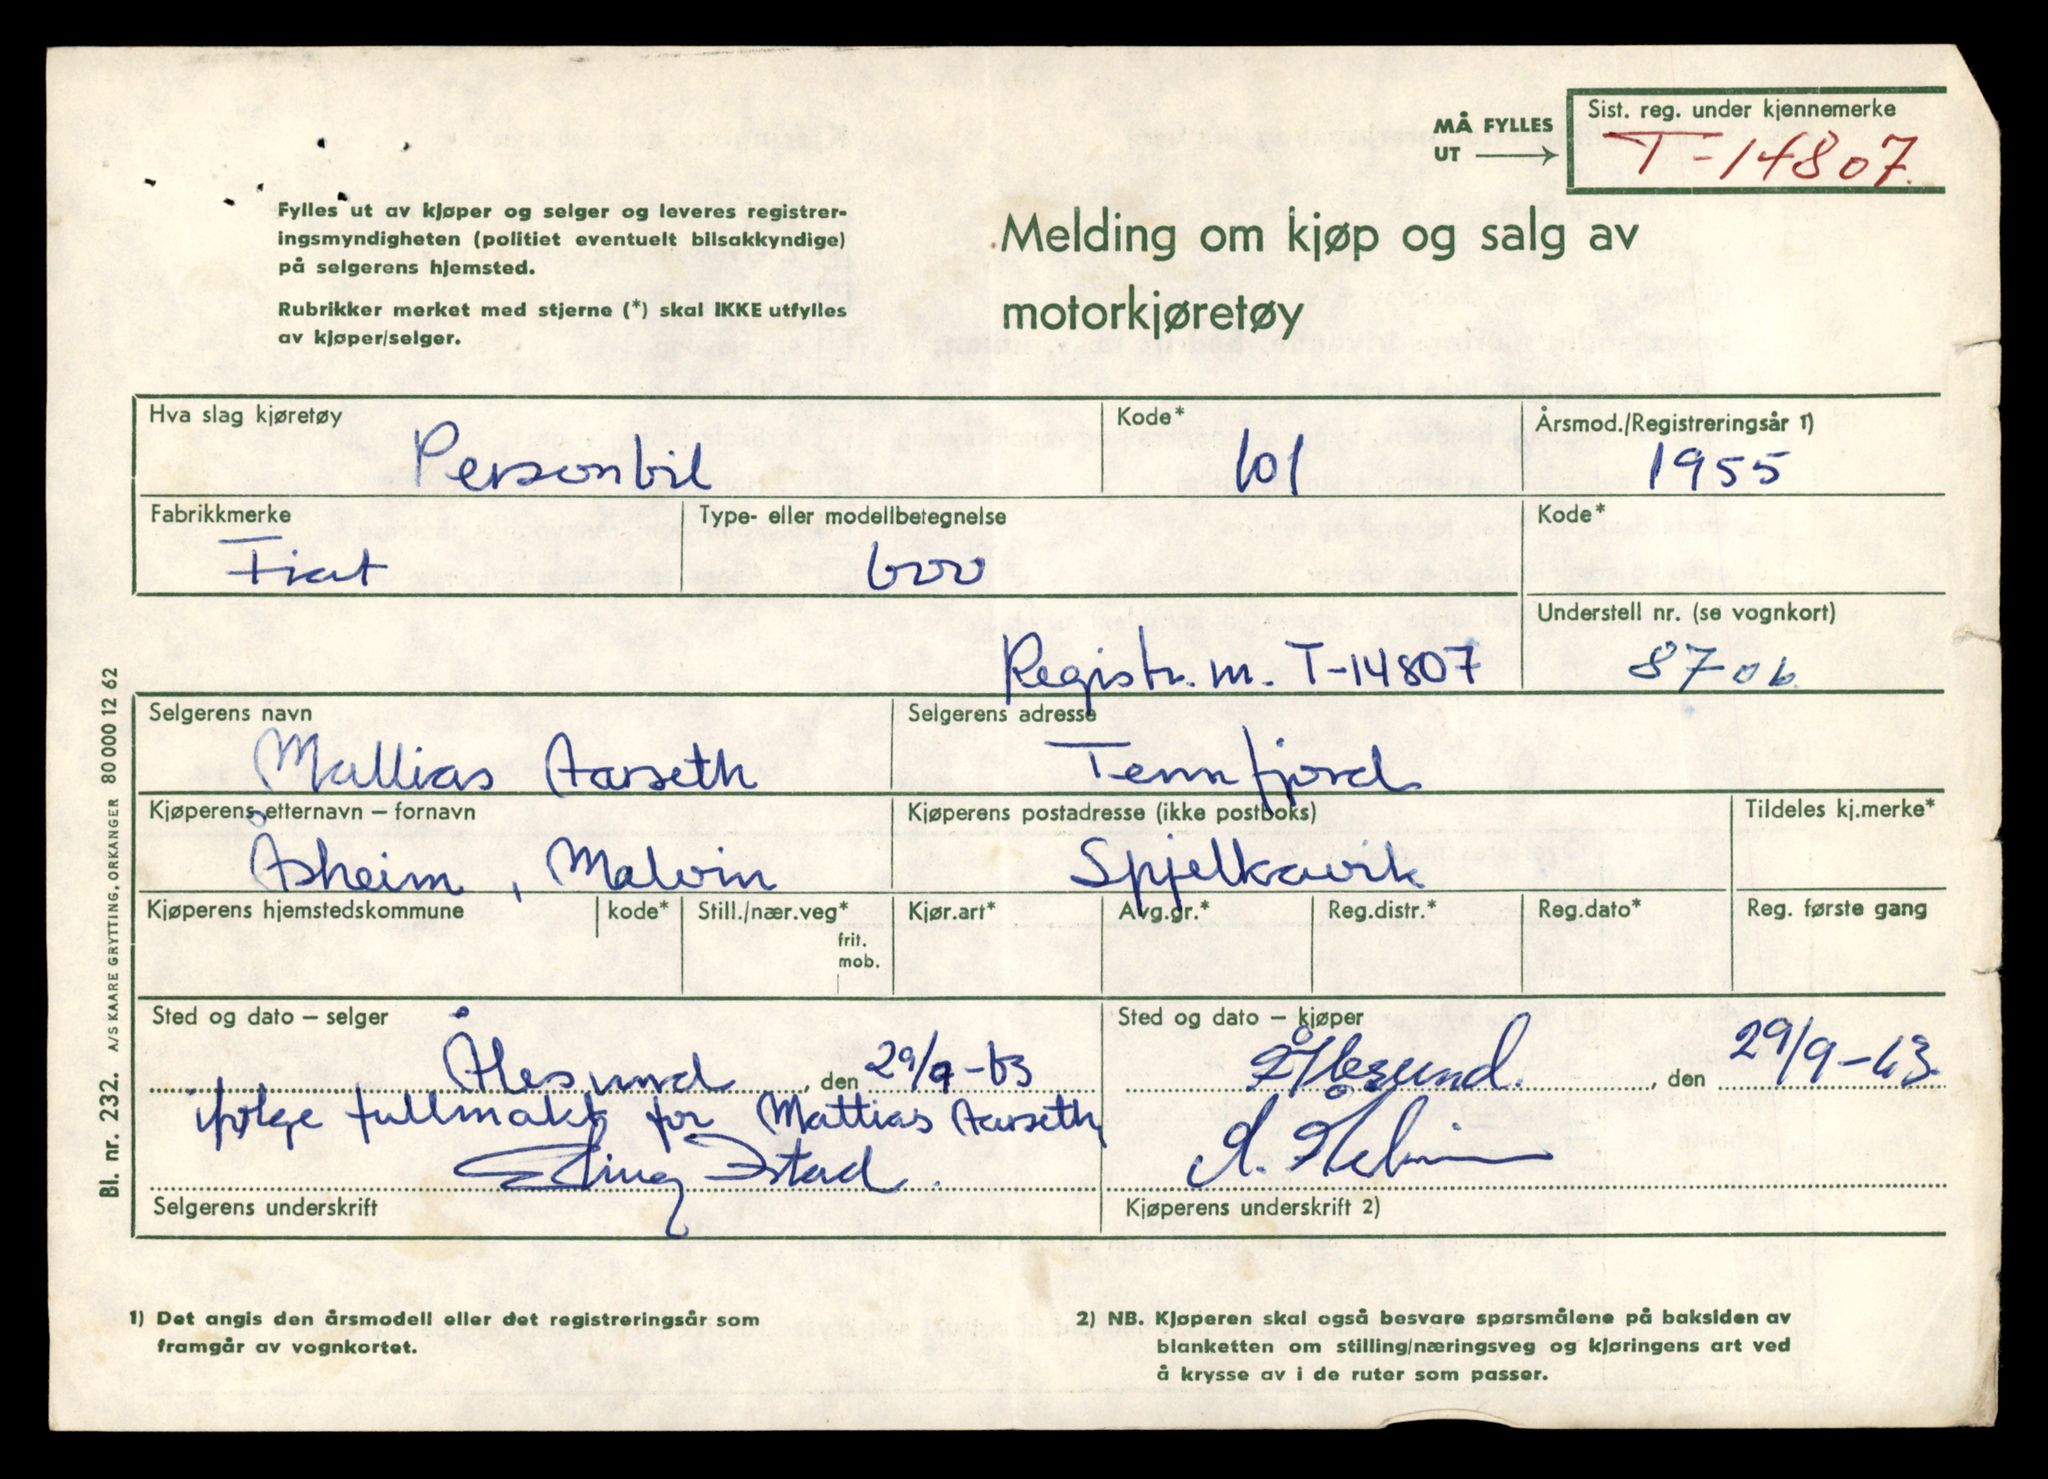 MÅ FYLLES
UT
Sist. reg. under kjennemerke
T-14807.
Fylles ut av kjøper og selger og leveres registrer-
ingsmyndigheten (politiet eventuelt bilsakkyndige)
på selgerens hjemsted.
Rubrikker merket med stjerne (*) skal IKKE utfylles
av kjøper/selger.
Melding om kjøp og salg av
motorkjøretøy
Hva slag kjøretøy
Personbil
Kode*
101
Årsmod./Registreringsår 1)
1955
Fabrikkmerke
Fiat
Type- eller modellbetegnelse
600
Kode*
Understell nr. (se vognkort)
Registr. m. T-14807
Selgerens navn
Mattias Aarseth
Selgerens adresse
Tennfjord
Kjøperens etternavn – fornavn
Åsheim, Malvin
Kjøperens postadresse (ikke postboks)
Spjelkavik
Tildeles kj.merke*
Kjøperens hjemstedskommune
kode*
Still./nær.veg*
frit.
mob.
Kjør.art*
Avg.gr.*
Reg.distr.*
Reg.dato*
Reg. første gang
Sted og dato – selger
Ålesund, den 29/9-63
ifølge fullmakt for Mattias Aarseth
Selgerens underskrift
Sted og dato – kjøper
Ålesund. , den 29/9-63.
Kjøperens underskrift 2)
1) Det angis den årsmodell eller det registreringsår som
framgår av vognkortet.
2) NB. Kjøperen skal også besvare spørsmålene på baksiden av
blanketten om stilling/næringsveg og kjøringens art ved
å krysse av i de ruter som passer.
Bl. nr. 232. A/S KAARE GRYTTING, ORKANGER 80000 12 62